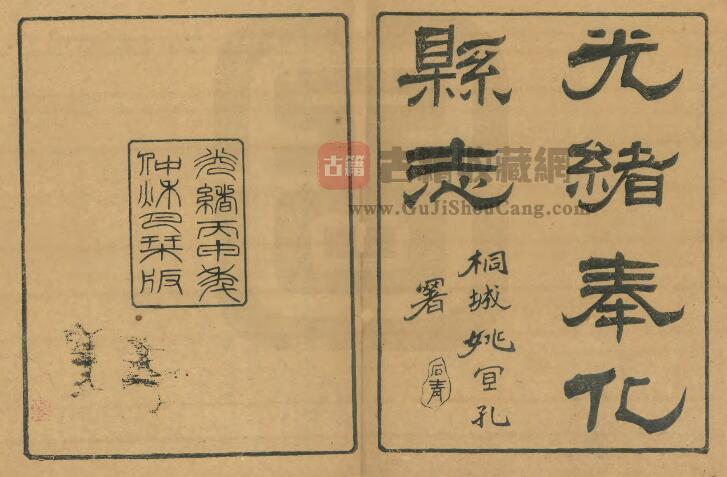 光緒奉化
縣志
桐城姚宜孔
署
光緒丙申秊
仲秌月栞版
古籍
古籍收藏網
www.GuJiShouCang.com